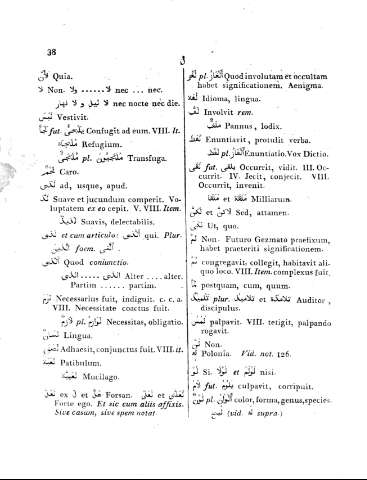 38
ل
لأن Quia.
لا Non. لا ..... ولا nec ... nec.
لا ليل و لا نهار nec nocte nec die.
لبس Vestivit.
fut. Confugit ad eum. VIII. It.
Refugium.
pl. Transfuga.
لحم Caro.
لدى ad, usque, apud.
لذ Suave et jucundum comperit. Vo-
luptatem ex eo cepit. V. VIII. Item.
لذيذ Suavis, delectabilis.
لذى et cum articulo: qui. Plur.
foem.
Quod coniunctio.
Alter .... alter.
Partim ...... partim.
لزم Necessarius fuit, indiguit. c. c. a.
VIII. Necessitate coactus fuit.
لازم pl. لوازم Necessitas, obligatio.
لسان Lingua.
Adhaesit, conjunctus fuit. VIII. it.
Patibulum.
Mucilago.
لعل ex ل et عل Forsan. لعلى et
Forte ego. Et sic cum aliis affixis.
Sive casum, sive spem notat
لغز pl. الغاز Quod involutam et occultam
habet significationem. Aenigma.
Idioma, lingua.
لف Involvit rem.
Pannus, lodix.
لفظ Enuntiavit, protulit verba.
لفظ pl. الفاظ Enuntiatio. Vox Dictio.
لقى fut. يلقى Occurrit, vidit. III. Oc-
currit. IV. Jecit, conjecit. VIII.
Occurrit, invenit.
et Milliarium.
لكن et لاكن Sed, attamen.
Ut, quo.
لم Non. Futuro Gezmato praefixum,
habet praeteriti significationem.
لم congregavit. collegit, habitavit ali-
quo loco. VIII. Item. complexus fuit.
لما postquam, cum, quum.
تلميذ plur. تلاميذ et تلامذة Auditor,
discipulus.
لمس palpavit. VIII. tetigit, palpando
rogavit.
لن Non.
له Polonia. Vid. not. 126.
لو Si. لو لم et لولا nisi.
لام fut. يلوم culpavit, corripuit.
لون pl. الوان color, forma, genus, species.
(vid. له supra.)